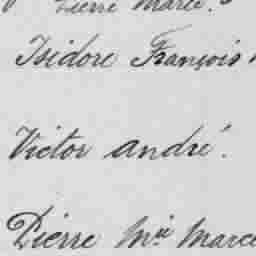 Pierre Marie.
Isidore François
Victor andré.
Pierre Mie Marce